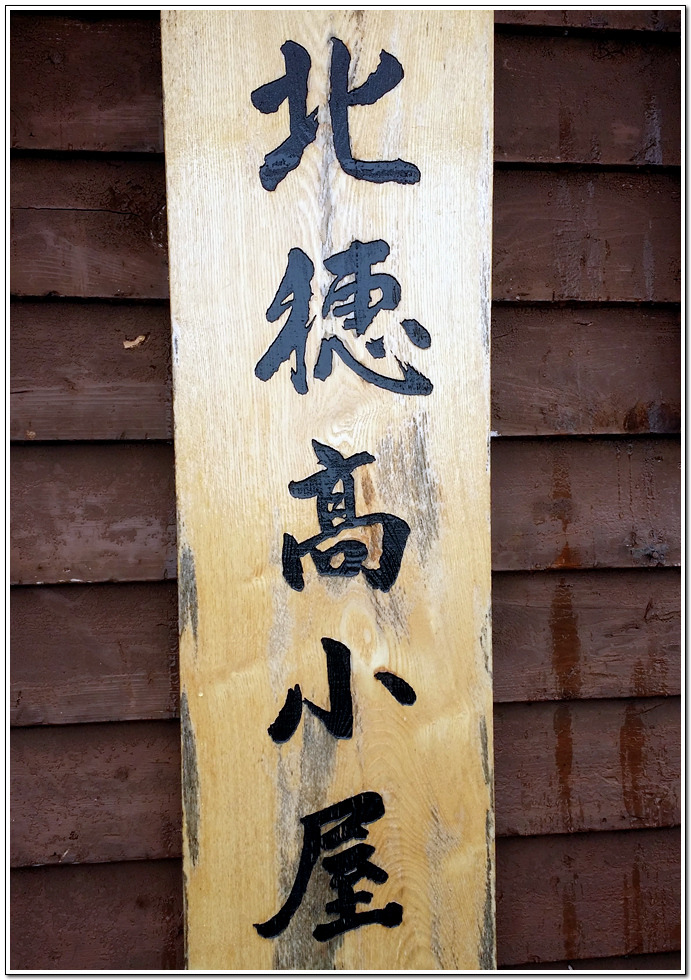 北穂高小屋